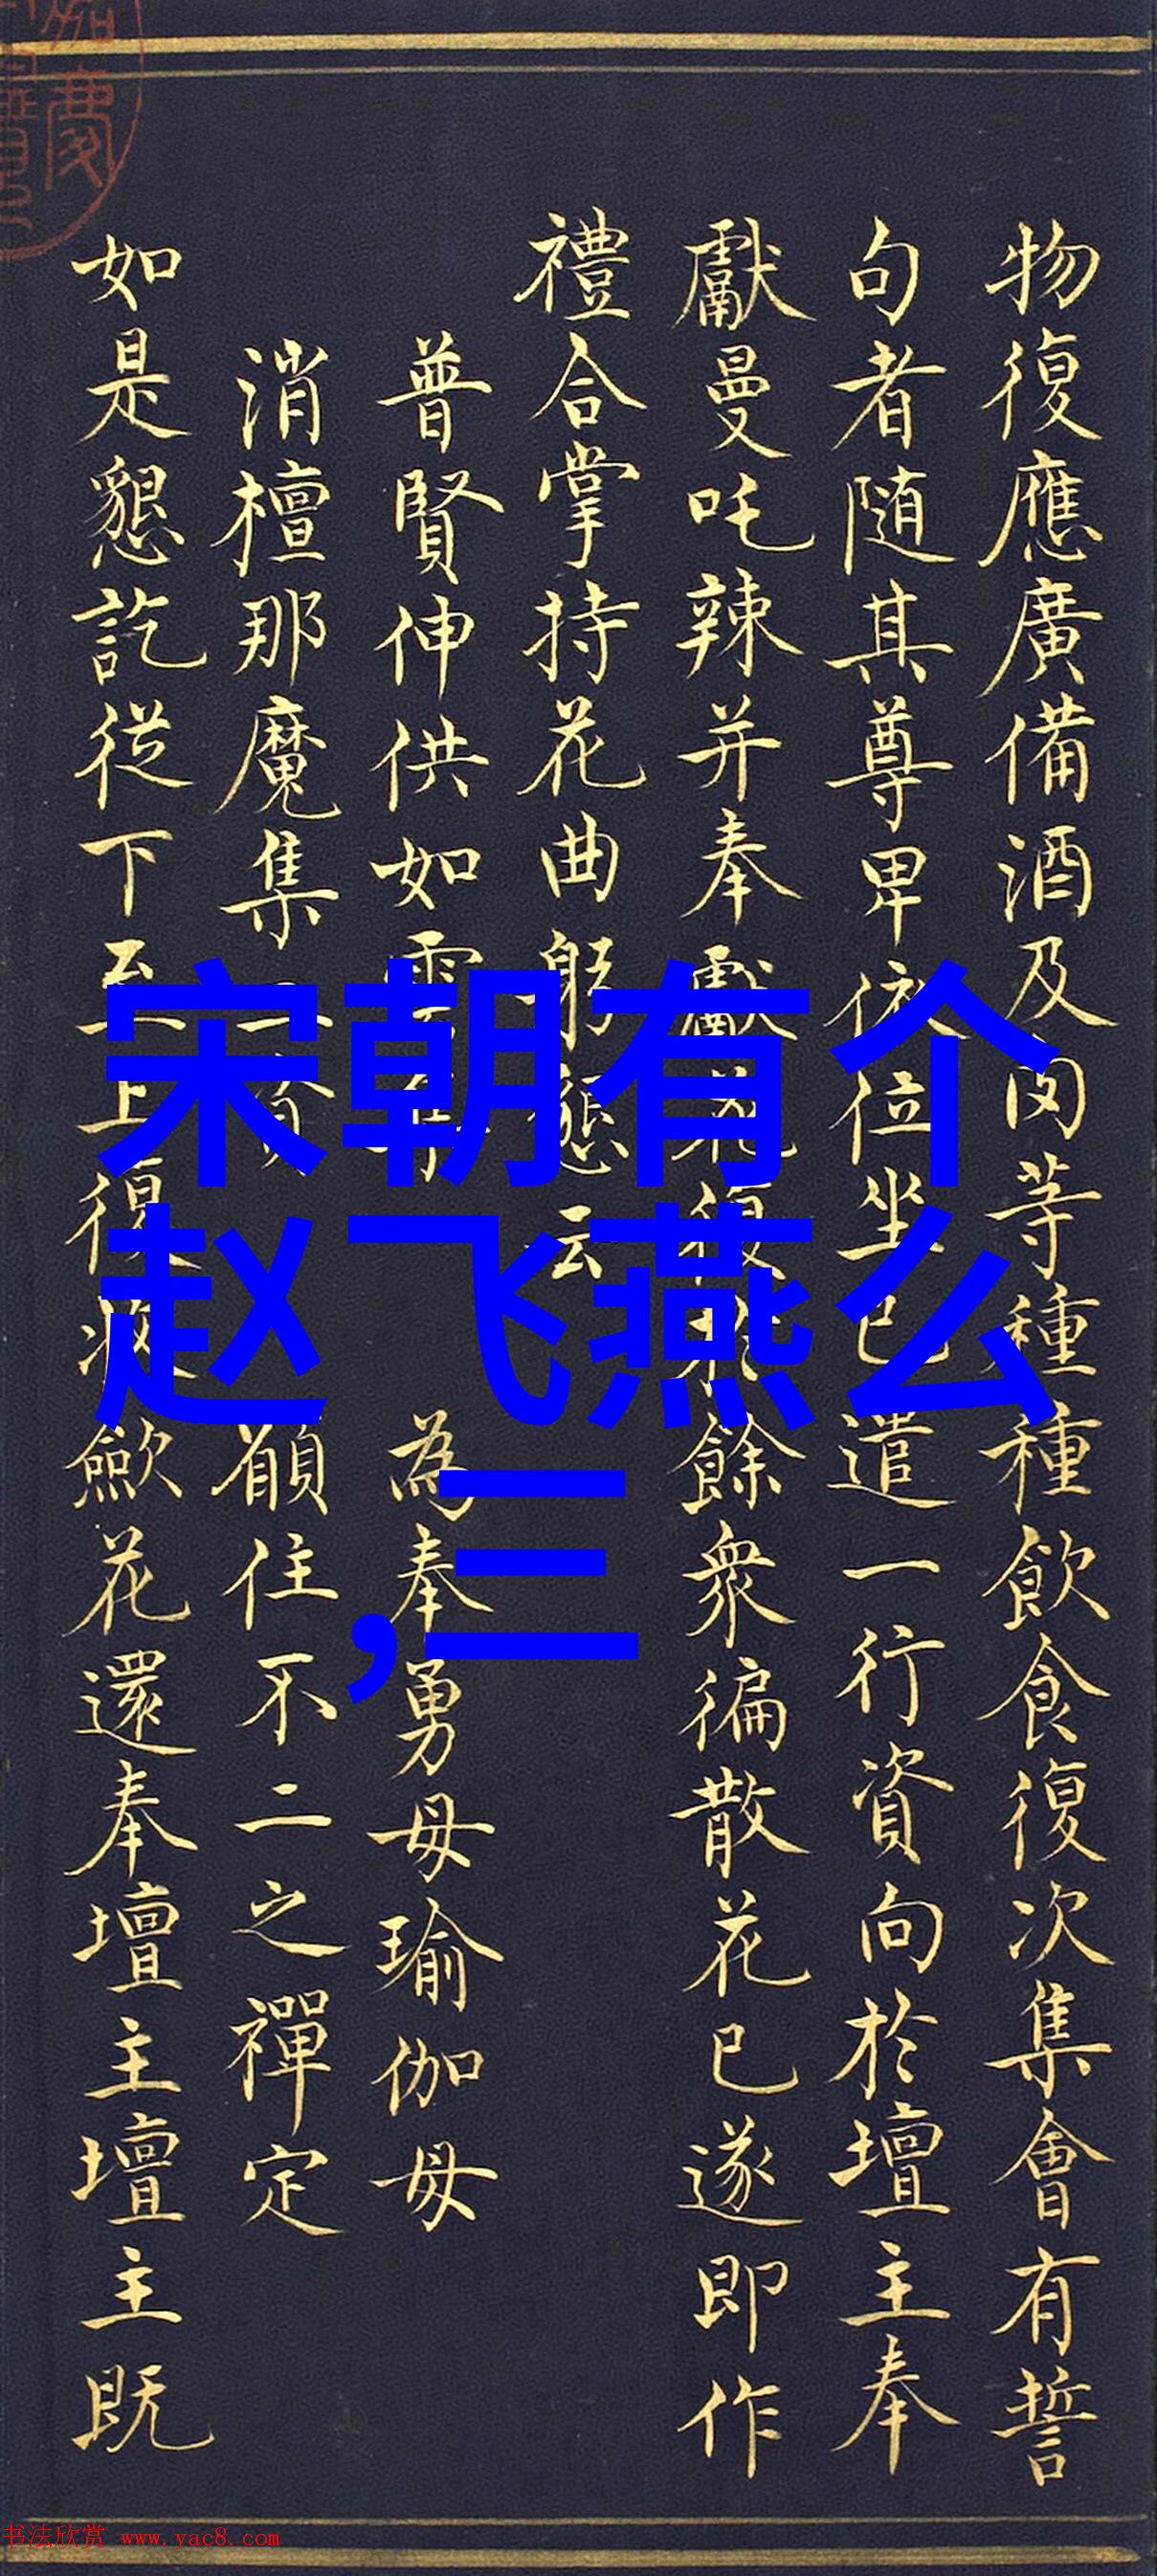 物復應廣備酒及肉等種種飲食復次集會有誓
句者随其尊卑依位坐已遣一行資向於壇主奉
獻曼吒辣并奉獻花復於餘衆徧散花已遂即作
禮合掌持花曲躬懇云
普賢伸供如雲 為奉勇母瑜伽母
消檀那魔集 願住不二之禪定
如是懇訖從下至上復次斂花還奉壇主壇主既
宋朝有个
赵飞燕么
,三
书法欣赏 www.yac8.com